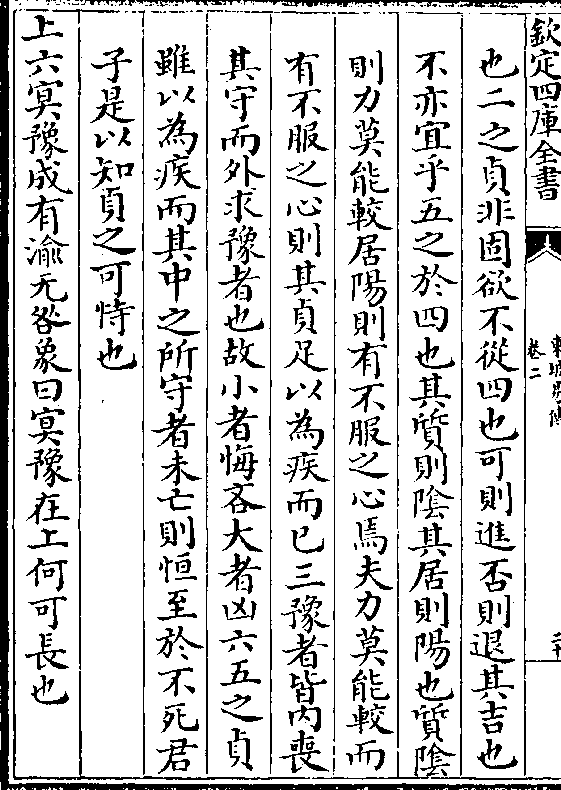 欽定四庫全書
東坡易傳
卷二
二十
也二之貞非固欲不從四也可則進否則退其吉也
不亦宜乎五之於四也其質則陰其居則陽也質陰
則力莫能較居陽則有不服之心焉夫力莫能較而
有不服之心則其貞足以為疾而已三豫者皆内喪
其守而外求豫者也故小者悔吝大者凶六五之貞
雖以為疾而其中之所守者未亡則恒至於不死君
子是以知貞之可恃也
上六冥豫成有渝无咎象曰冥豫在上何可長也